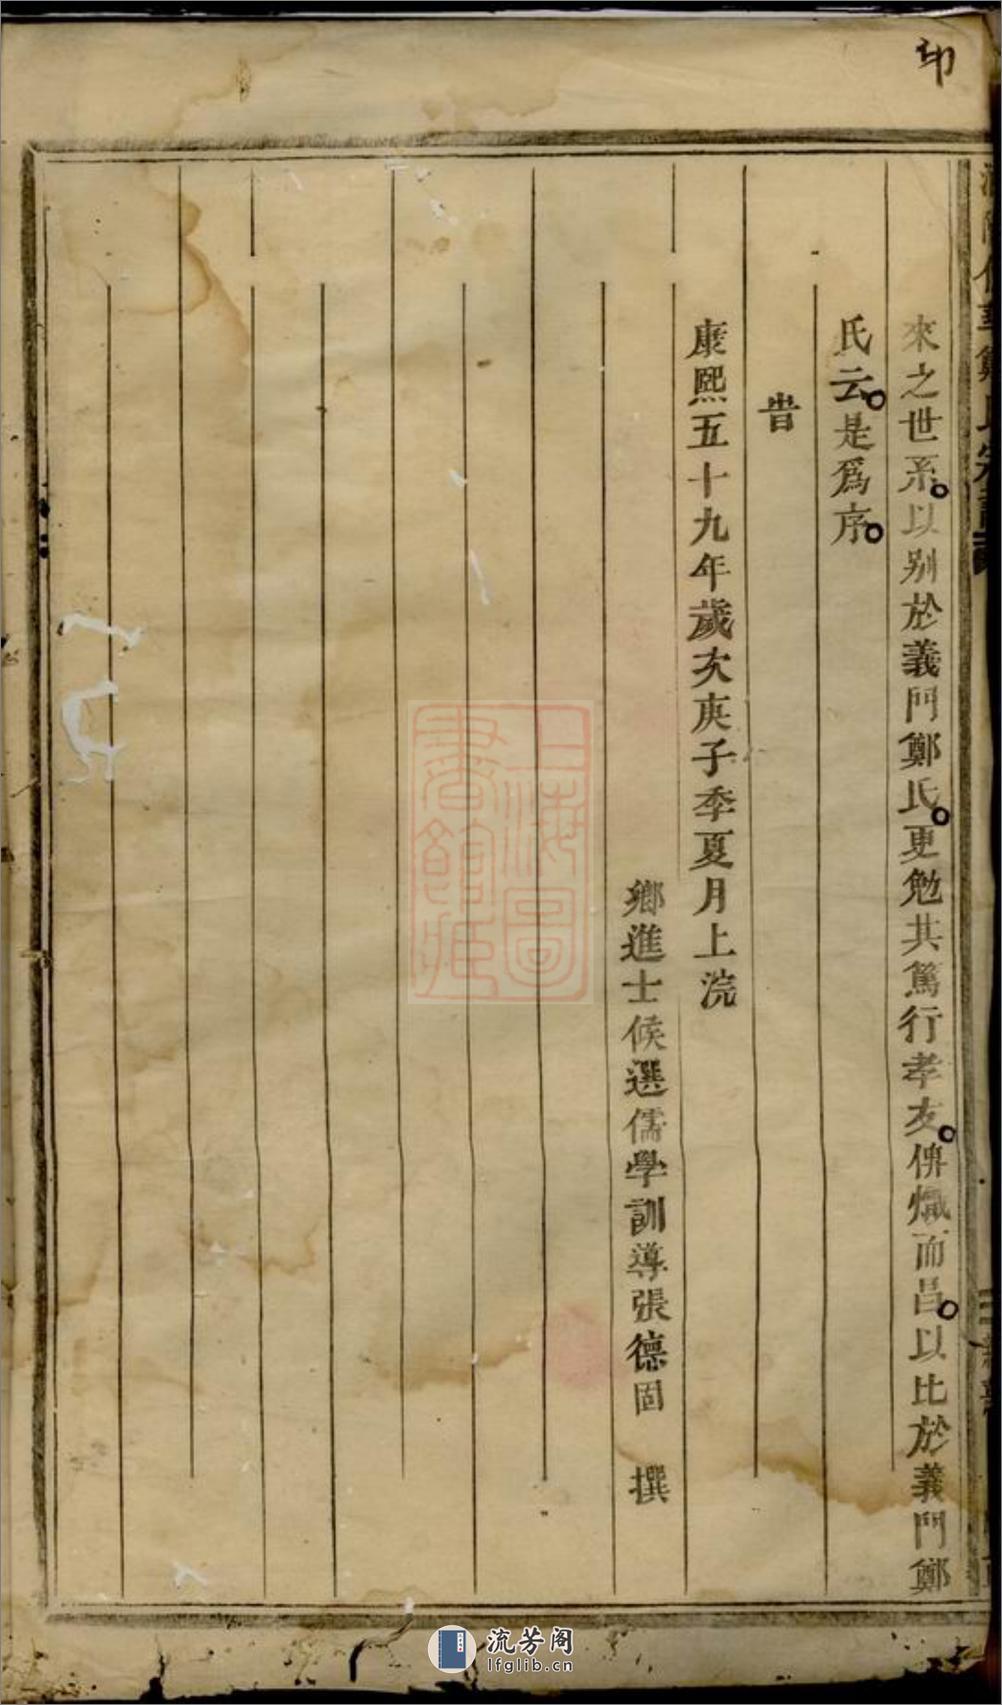 印
來之世系。以别於義門鄭氏。更勉其篤行孝友。俾熾而昌。以比於義門鄭
氏云。是爲序。
旹
康熙五十九年歲次庚子季夏月上浣
鄉進士候選儒學訓導張德固 撰
上海圖
書館藏
流芳阁
lfglib.cn